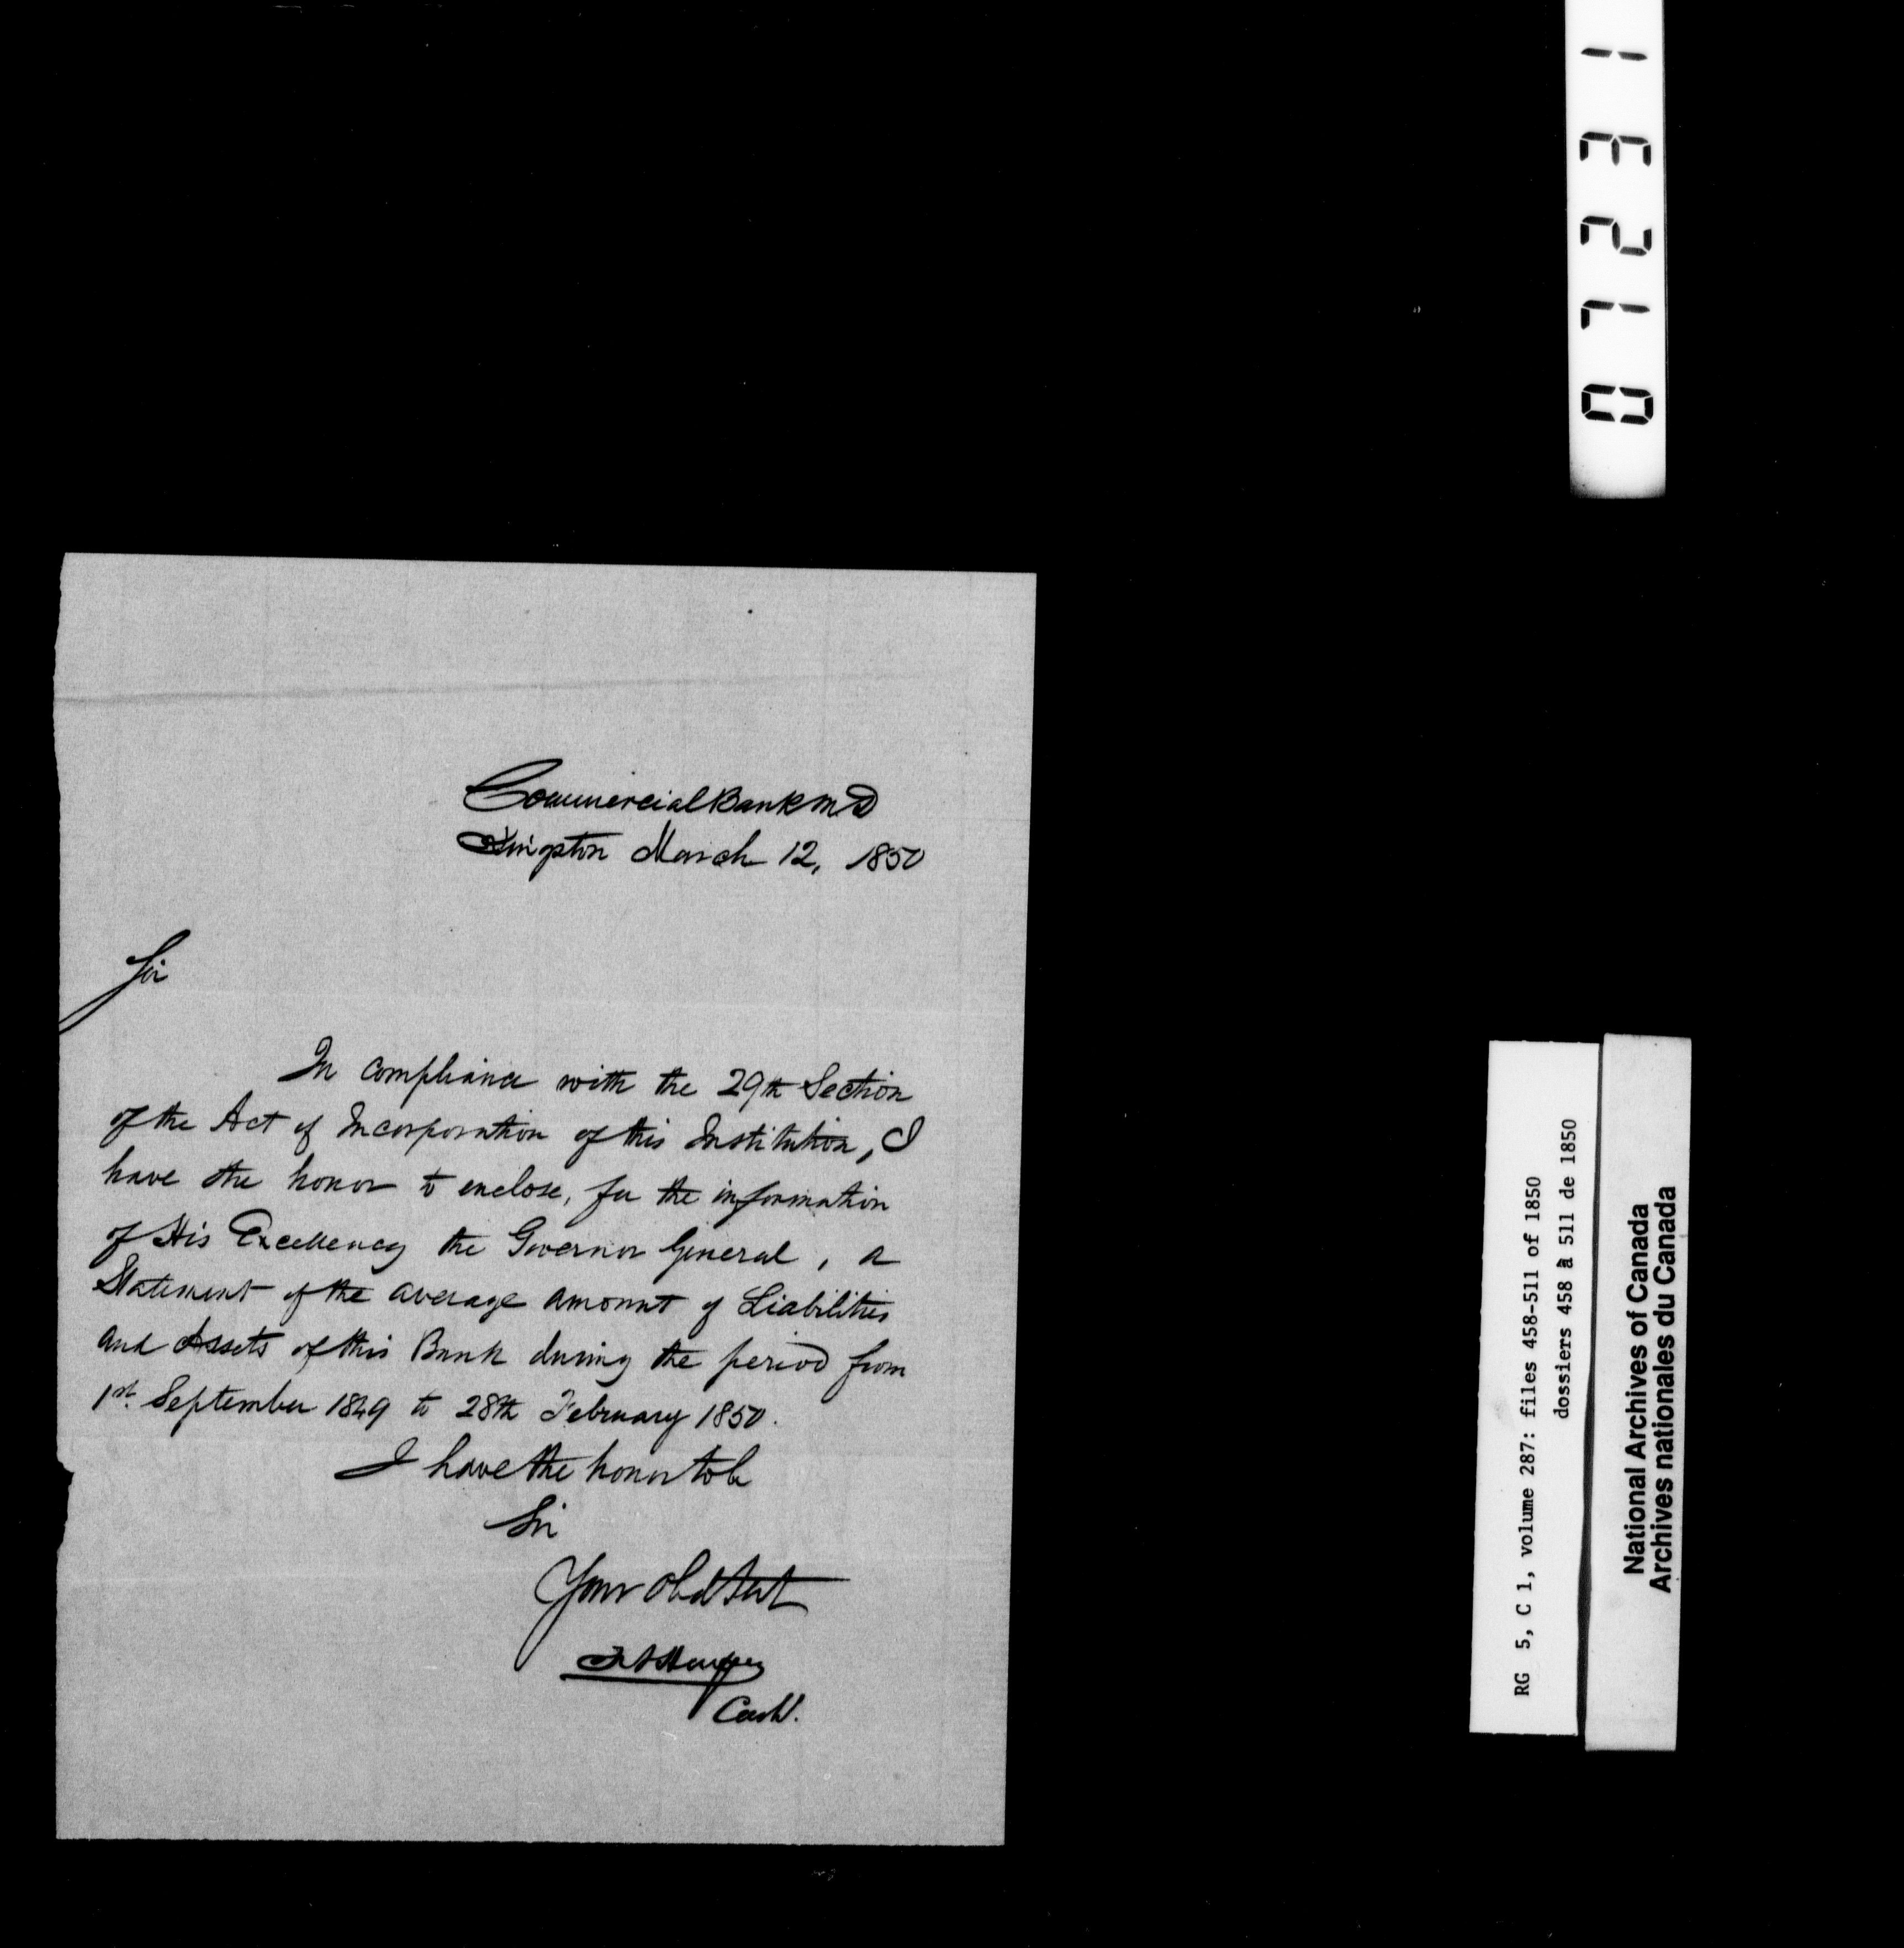 Commercial Bank M.D
Kingston March 12, 1850
Sir
In compliance with the 29th Section
of the Act of Incorporation of this Institution, I
have the honor to enclose, for the information
of His Excellency the Governor General, a
Statement of the average amount of Liabilities
and Assets of this Bank during the period from
1st. September 1849 to 28th February 1850.
I have the honor to be
Sir
Your Obdt Servt
Cash'r.
01231
RG 5, C 1, volume 287: files 458-511 of 1850
dossiers 458 à 511 de 1850
National Archives of Canada
Archives nationales du Canada